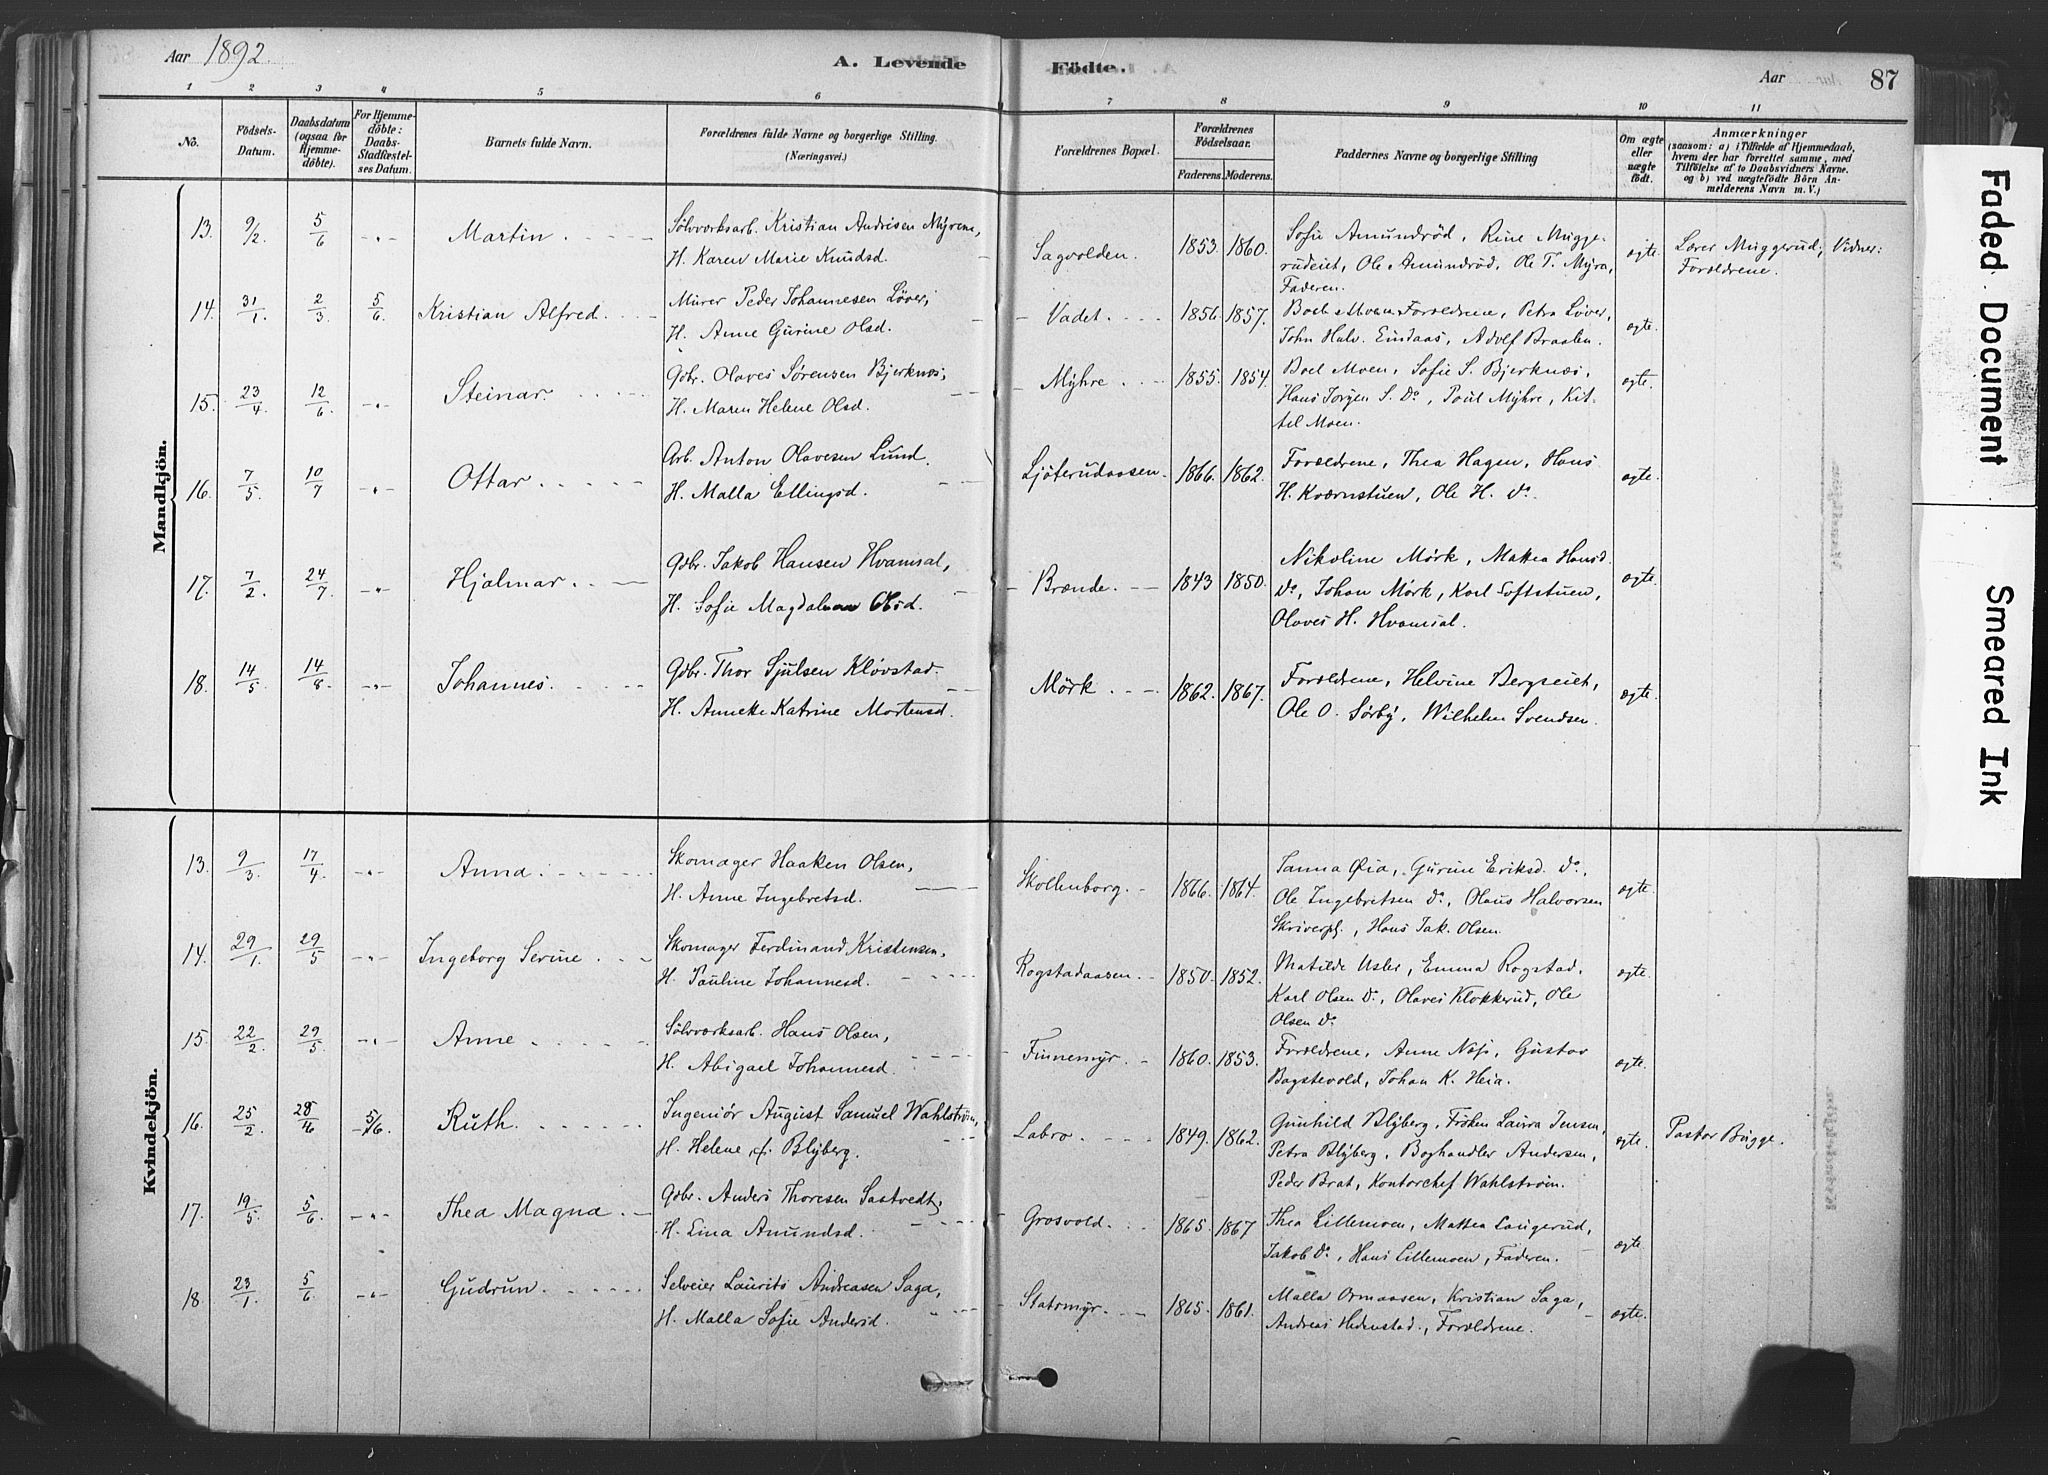 Aar 1892.
A. Levende Födte.
Aar
87
1 2 3 4 5 6 7 8 9 10 11
No.
Födsels-
Datum.
Daabsdatum
(ogsaa for
Hjemme-
döbte).
For Hjemme-
döbte:
Daabs-
Stadfæstel-
ses Datum.
Barnets fulde Navn.
Forældrenes fulde Navne og borgerlige Stilling.
(Næringsvei.)
Forældrenes Bopæl.
Forældrenes
Födselsaar.
Faderens. Moderens.
Faddernes Navne og borgerlige Stilling
Om ægte
eller
uægte
födt.
Anmærkninger
(saasom: a) i Tilfælde af Hjemmedaab,
hvem der har forrettet samme, med
Tilföielse af to Daabsvidners Navne.
og b) ved uægtefödte Börn An-
melderens Navn m. V.)
Mandkjön.
13. 9/2 5/6 -"- Martin. Sølvværksarb. Kristian Andrisen Myrene,
H. Karen Marie Knudsd.
Sagvolden. 1853. 1860.
Sofie Amundrød, Rine Mugge-
rudeiet, Ole Amundrød, Ole T. Myra,
Faderen.
ægte. Lærer Muggerud; Vidner:
Forældrene.
14. 31/1 2/3 5/6 Kristian Alfred. Murer Peder Johannesen Løver,
H. Anne Gurine Olsd.
Vadet. 1856. 1857.
Boel Moen, Forældrene, Petra Løver,
John Halv. Eindaas, Adolf Braalen.
ægte.
15. 23/4 12/6 -"- Steinar. Gdbr. Olaves Sørensen Bjerknæs,
H. Maren Helene Olsd.
Myhre. 1855. 1854.
Boel Moen, Sofie S. Bjerknæs,
Hans Jørgen S. Do, Poul Myhre, Kit-
tel Moen.
ægte.
16. 7/5 10/7 -"- Ottar. Arb. Anton Olavesen Lund.
H. Malla Ellingsd.
Ljøterudaasen. 1866. 1862.
Forældrene, Thea Hagen, Hans
H. Kværnstuen, Ole H. Do.
ægte.
17. 7/2 24/7 -"- Hjalmar. Gdbr. Jakob Hansen Hvamsal,
H. Sofie Magdalena Olsd.
Brænde. 1843 1850.
Nikoline Mörk, Mattea Hansd.
Do, Johan Mörk, Karl Loftstuen,
Olaves H. Hvamsal.
ægte.
18. 14/5 14/8 -"- Johannes. Gdbr. Thor Sjulsen Kløvstad.
H. Annette Katrine Mortensd.
Mörk. 1862. 1867.
Forældrene, Helvine Bergseiet,
Ole O. Sørby, Wilhelm Svendsen.
ægte.
Kvindekjön.
13. 9/3 17/4 -"- Anna. Skomager Haaken Olsen,
H. Anne Ingebretsd.
Skollenborg. 1866. 1864.
Sanna Øia, Gurine Eriksd. Do,
Ole Ingebritsen Do, Olaus Halvorsen
Skriverpl., Hans Jak. Olsen.
ægte.
14. 29/1 29/5 -"- Ingeborg Serine. Skomager Ferdinand Kristensen,
H. Pauline Johannesd.
Rogstadaasen. 1850. 1852.
Matilde Usler, Emma Rogstad,
Karl Olsen Do, Olaves Klokkerud, Ole
Olsen Do
ægte.
15. 22/2 29/5 -"- Anne. Sølvværksarb. Hans Olsen,
H. Abigael Johannesd.
Finnemyr. 1860. 1853.
Forældrene, Anne Næs, Gustav
Bagstevold, Johan K. Heia.
ægte.
16. 25/2 28/4 5/6. Ruth. Ingeniör August Samuel Wahlström,
H. Helene f. Blyberg.
Labro. 1849. 1862.
Gunhild Blyberg, Fröken Laura Jensen,
Petra Blyberg, Boghandler Andersen,
Peder Brat, Kontorchef Wahlström.
ægte. Pastor Bugge.
17. 19/5 5/6 -"- Thea Magna. Gdbr. Anders Thoresen Sastvedt,
H. Lina Amundsd.
Grosvold. 1865. 1867
Thea Lillemoen, Mattea Laugerud,
Jakob Do, Hans Lillemoen, Faderen.
ægte.
18. 23/1 5/6 -"- Gudrun. Selveier Laurits Andreasen Saga,
H. Malla Sofie Andersd.
Statsmyr. 1865. 1861.
Malla Ormaasen, Kristian Saga,
Andreas Hedenstad, Forældrene.
ægte.
Faded Document
Smeared Ink